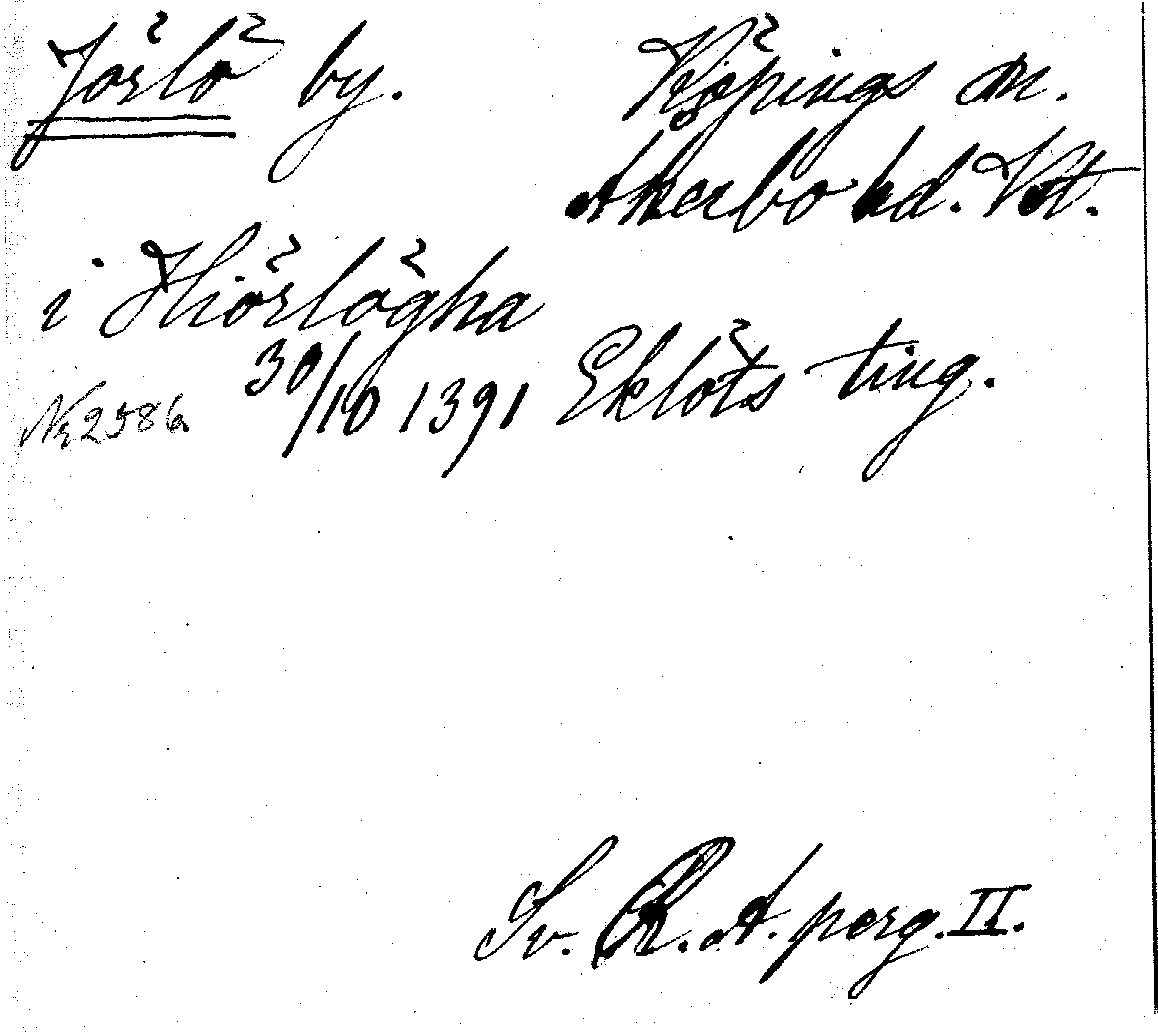 Jörlö by.
Köpings sn.
Åkerbo hd. Vstm.
i Hiörlögha
30/10 1391 Eklöts ting.
Nr 2586
Sv. R. A. perg. II.